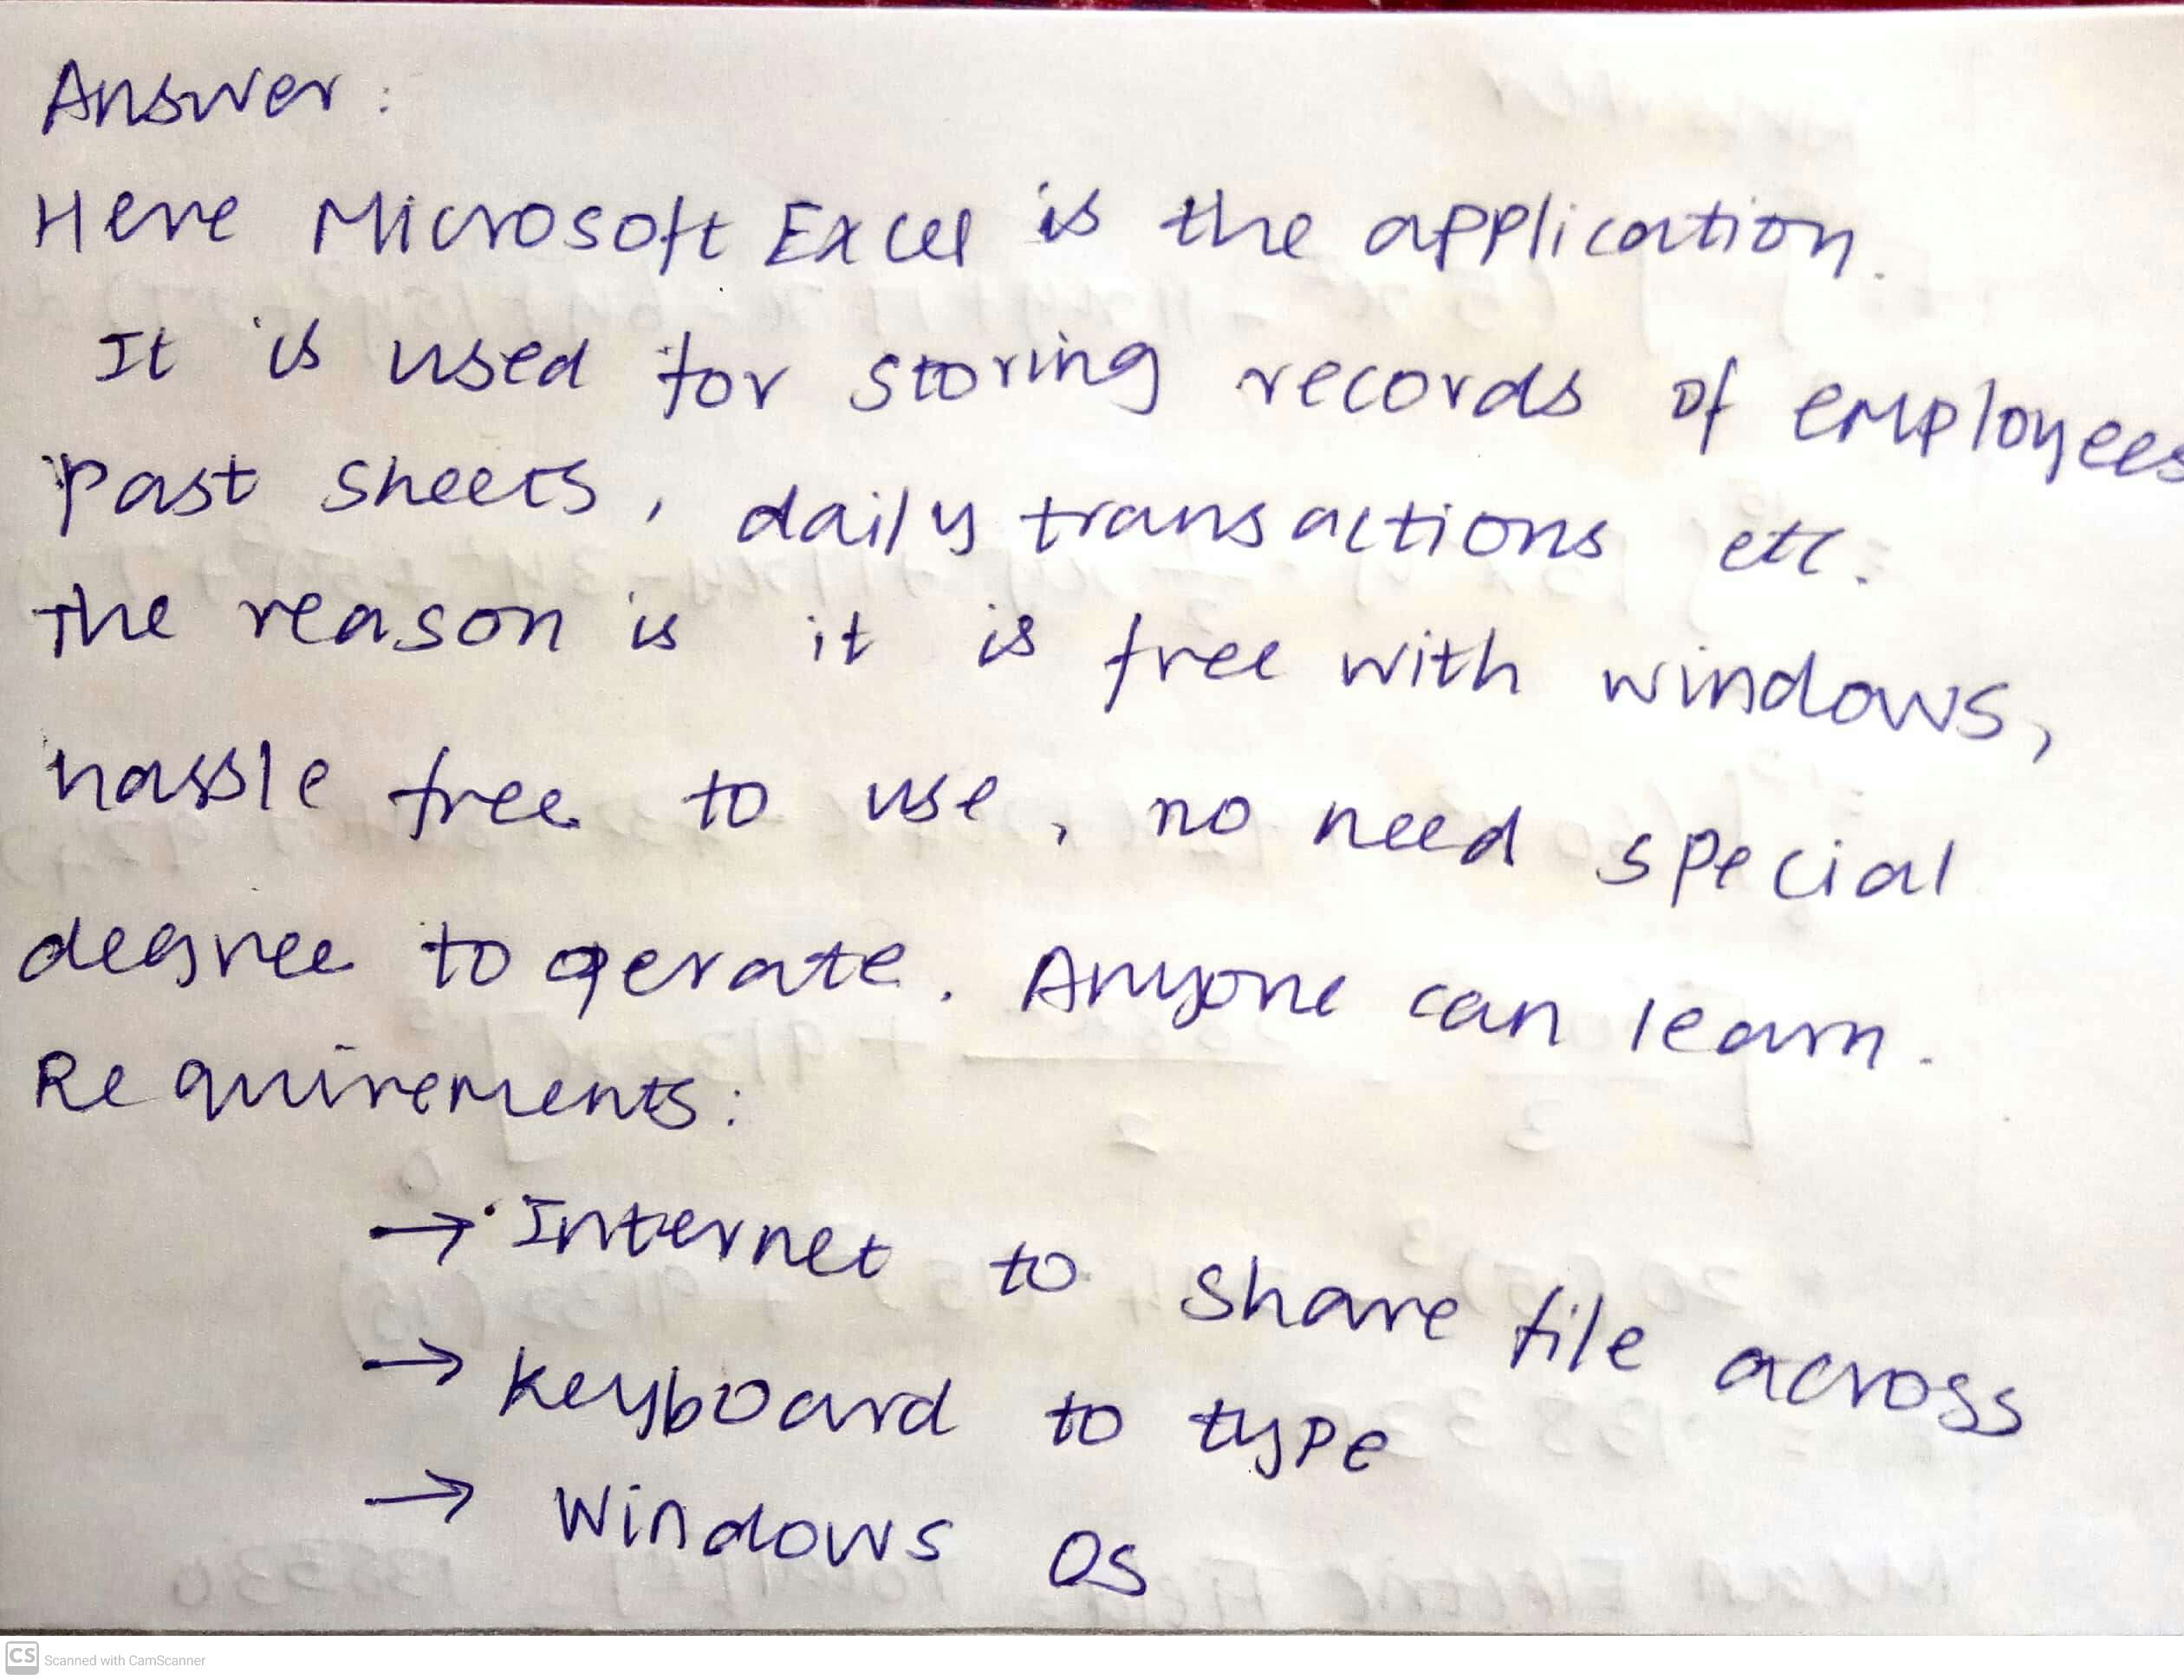 Answer:
Here Microsoft Excel is the application.
It is used for storing records of employees
past sheets, daily transactions etc.
The reason is it is free with windows,
hassle free to use, no need special
degree to operate. Anyone can learn.
Requirements:
→ Internet to share file across
→ Keyboard to type
→ Windows OS
CS Scanned with CamScanner